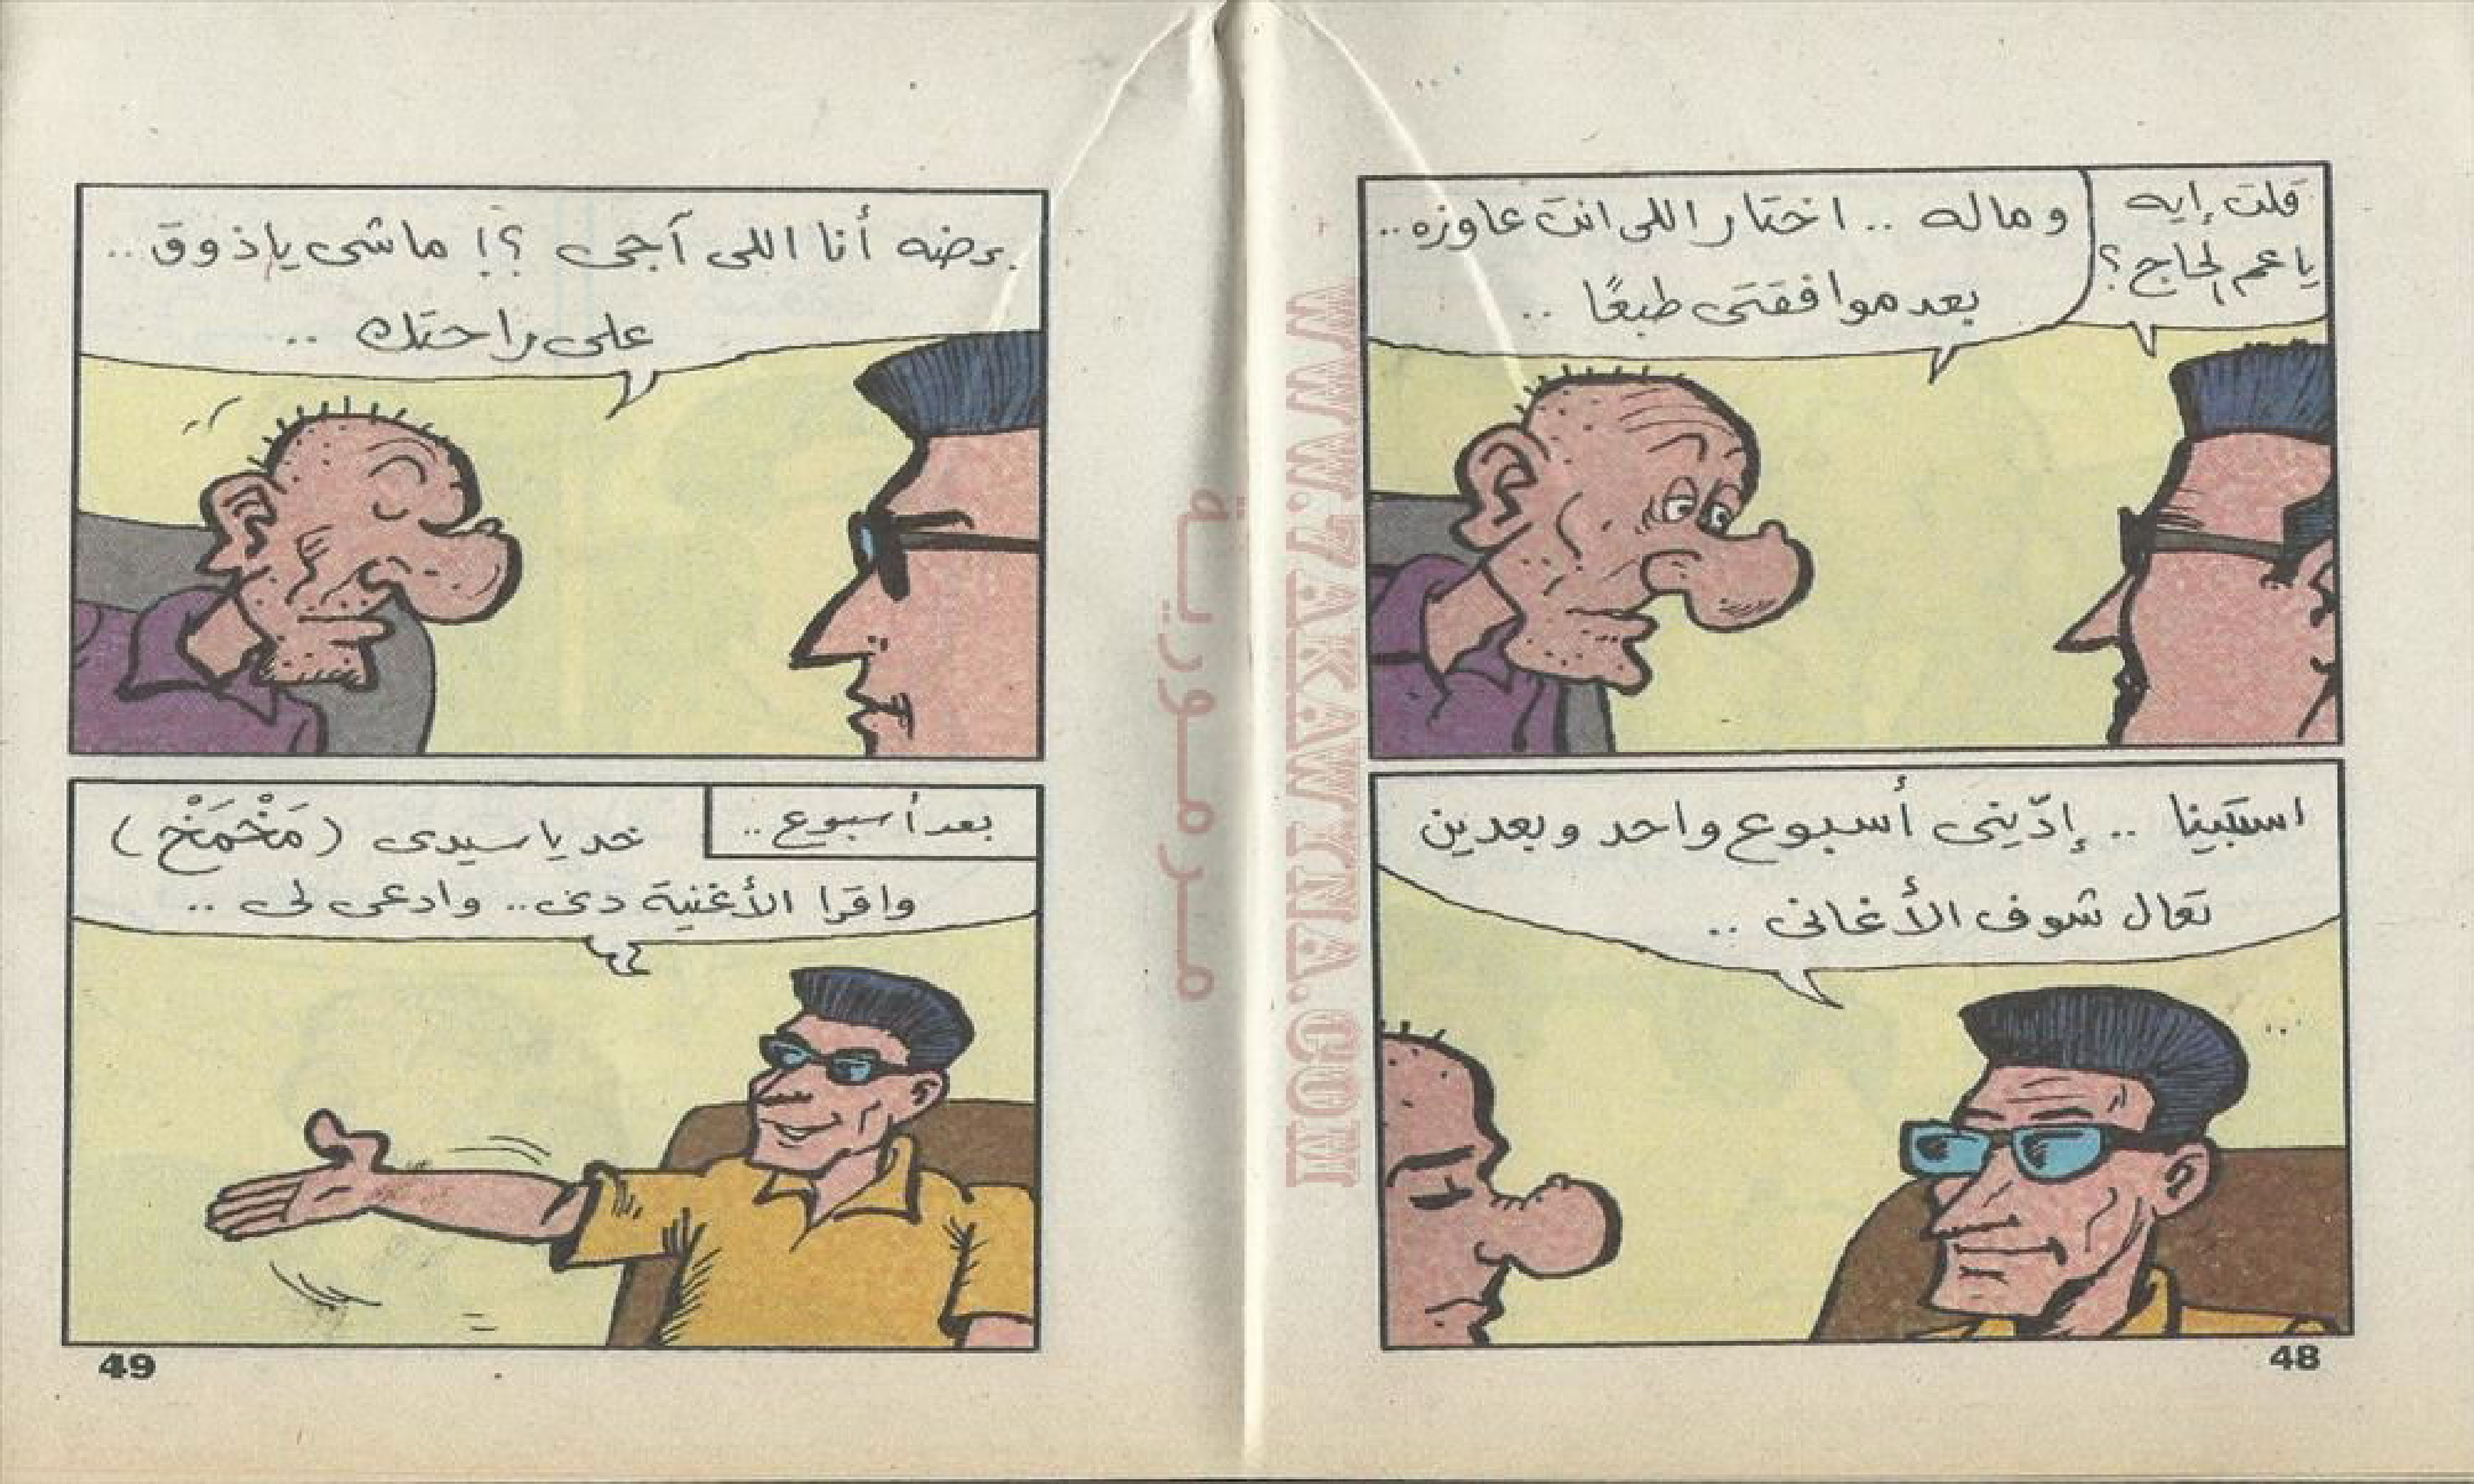 قلت إيه
يا عم الحاج؟
وماله .. اختار اللى انت عاوزه ..
بعد موافقتى طبعًا ..
استبينا .. إدّينى أسبوع واحد وبعدين
تعال شوف الأغانى ..
48
برضه أنا اللى آجى ؟! ماشى ياذوق ..
على راحتك ..
بعد أسبوع ..
خد يا سيدى (مَخْمَخْ)
واقرا الأغنية دى .. وادعى لى ..
49
WWW.7AKAWINA.COM
مرمورية